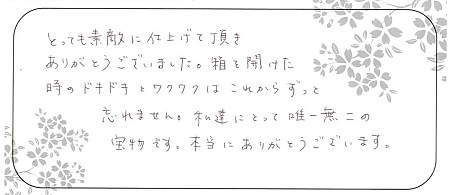 とっても素敵に仕上げて頂き
ありがとうございました。箱を開けた
時のドキドキとワクワクはこれからずっと
忘れません。私達にとって唯一無二の
宝物です。本当にありがとうございます。